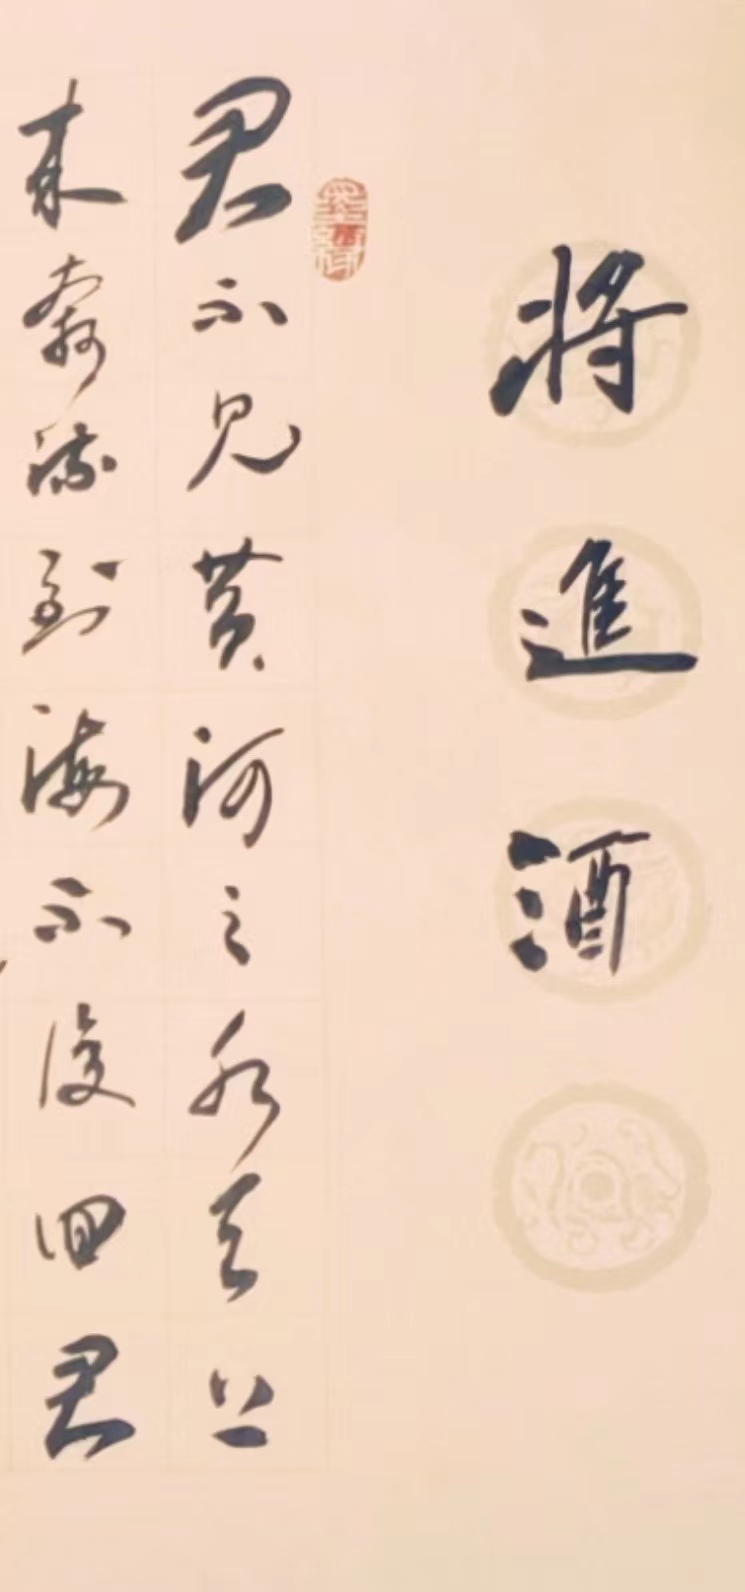 將進酒
君不見黃河之水天上
来奔流到海不復回君